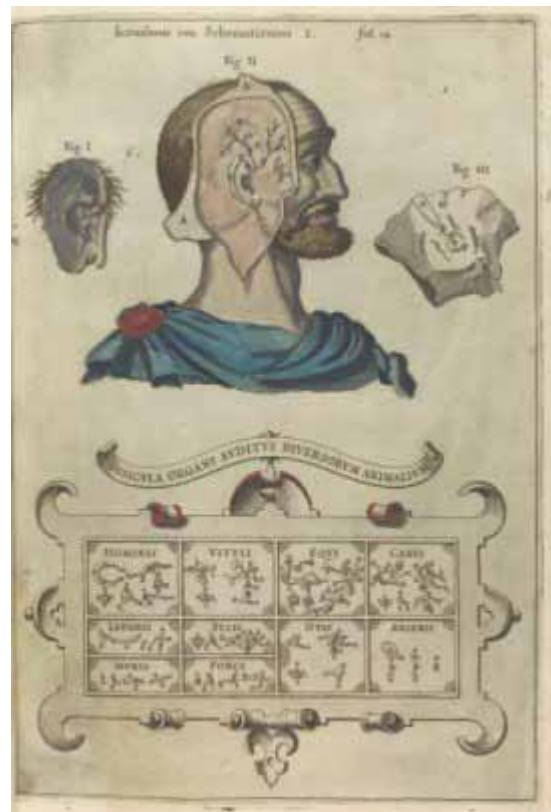 Schematismi I. fol. 14
Fig II
Fig I
Fig III
OSSICVLA ORGANI AVDITVS DIVERSORVM ANIMALIVM
HOMINIS VITVLI EQVI CANIS
LEPORIS FELIS OVIS ANSERIS
MVRIS PORCI